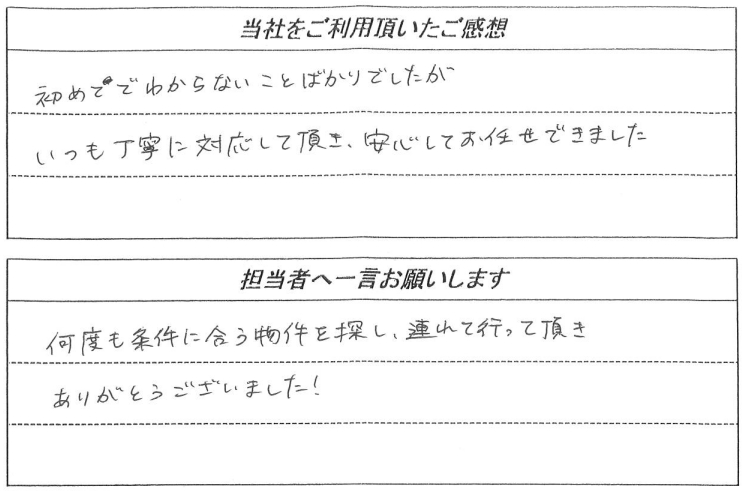 当社をご利用頂いたご感想
初めてでわからないことばかりでしたが
いつも丁寧に対応して頂き、安心してお任せできました
担当者へ一言お願いします
何度も条件に合う物件を探し、連れて行って頂き
ありがとうございました!